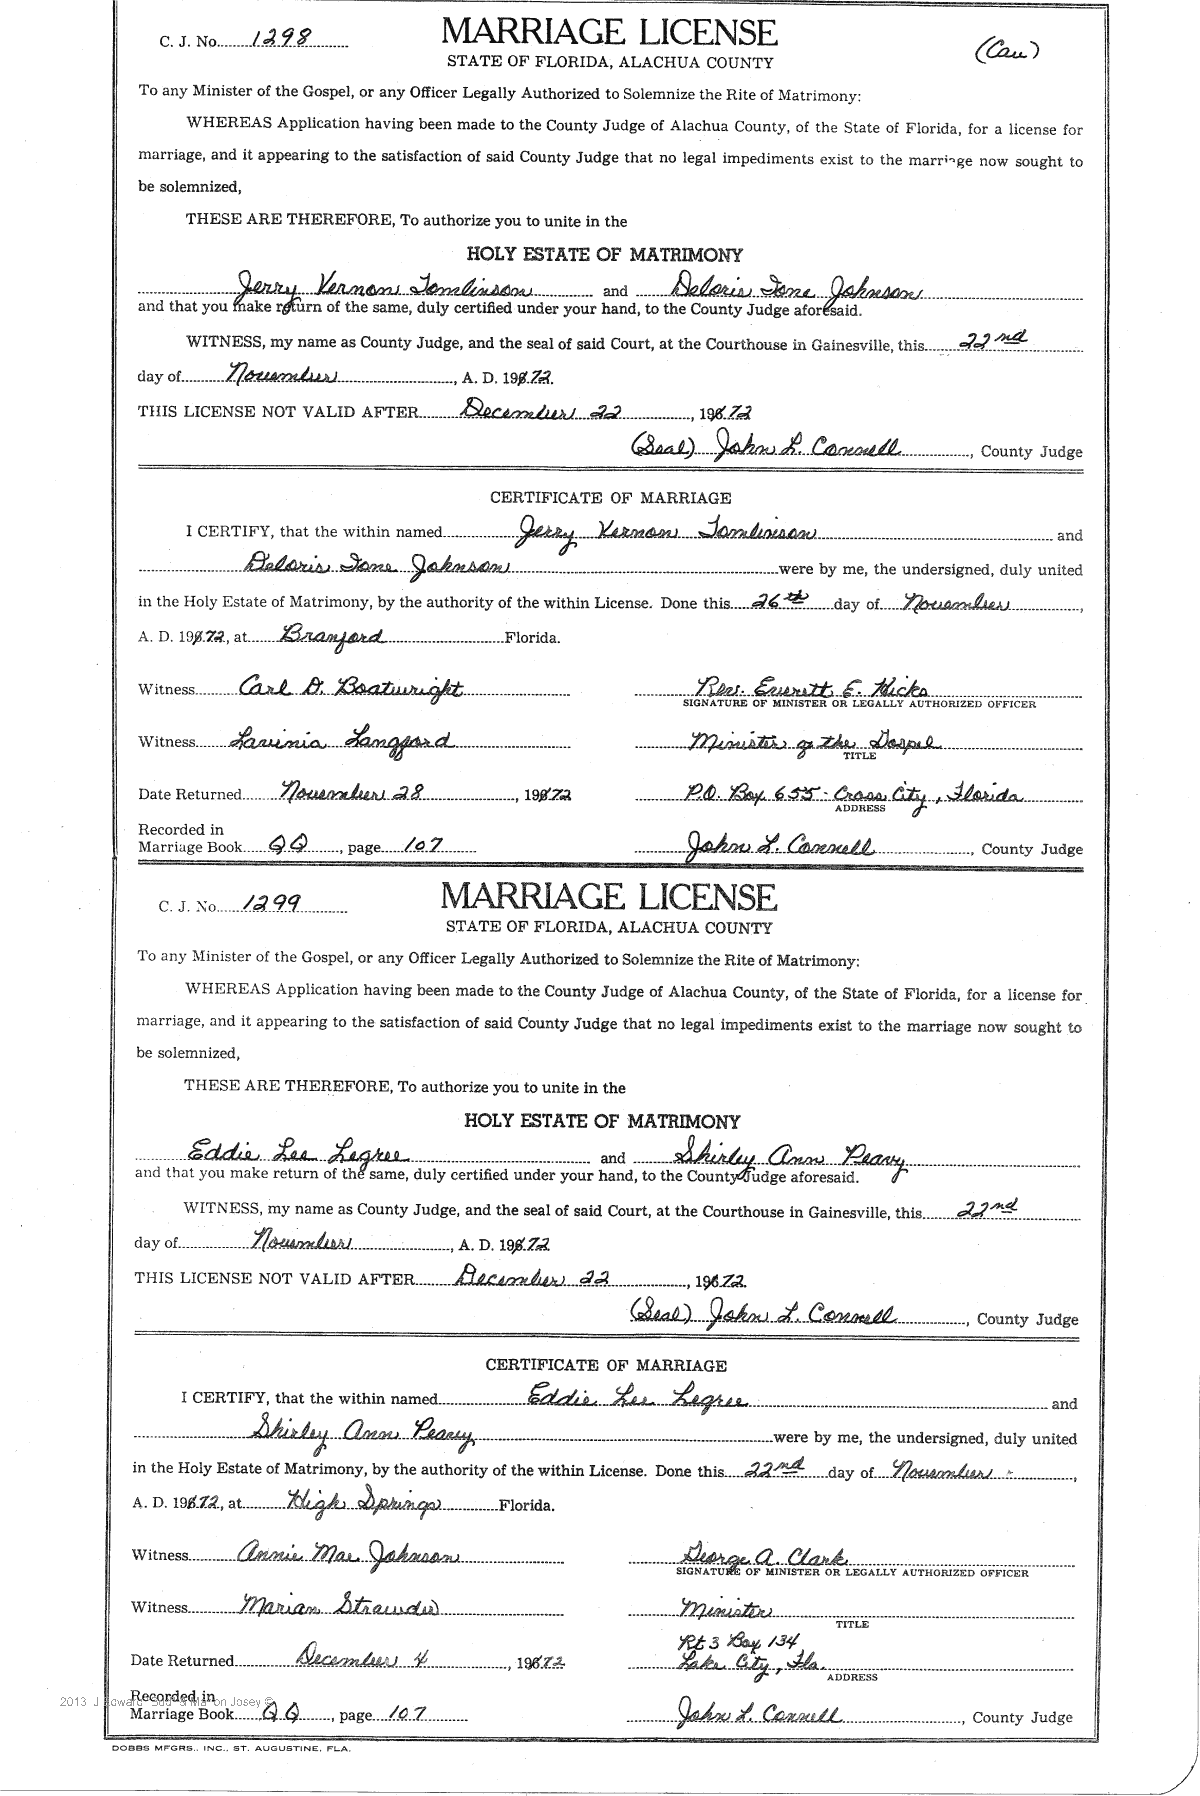 C. J. No. 1298
MARRIAGE LICENSE
(Cau)
STATE OF FLORIDA, ALACHUA COUNTY
To any Minister of the Gospel, or any Officer Legally Authorized to Solemnize the Rite of Matrimony:
WHEREAS Application having been made to the County Judge of Alachua County, of the State of Florida, for a license for
marriage, and it appearing to the satisfaction of said County Judge that no legal impediments exist to the marriage now sought to
be solemnized,
THESE ARE THEREFORE, To authorize you to unite in the
HOLY ESTATE OF MATRIMONY
Jerry Vernon Tomlinson and Deloris Ione Johnson
and that you make return of the same, duly certified under your hand, to the County Judge aforesaid.
WITNESS, my name as County Judge, and the seal of said Court, at the Courthouse in Gainesville, this 22nd
day of November, A. D. 1972.
THIS LICENSE NOT VALID AFTER December 22, 1972
(Seal) John L. Connell, County Judge
CERTIFICATE OF MARRIAGE
I CERTIFY, that the within named Jerry Vernon Tomlinson and
Deloris Ione Johnson were by me, the undersigned, duly united
in the Holy Estate of Matrimony, by the authority of the within License. Done this 26th day of November,
A. D. 1972, at Branford Florida.
Witness Carl D. Boatwright Rev. Everett E. Hicks
SIGNATURE OF MINISTER OR LEGALLY AUTHORIZED OFFICER
Witness Lavinia Langford Minister of the Gospel
TITLE
Date Returned November 28, 1972 P.O. Box 655 - Cross City, Florida
ADDRESS
Recorded in
Marriage Book QQ, page 107 John L. Connell, County Judge
C. J. No. 1299
MARRIAGE LICENSE
STATE OF FLORIDA, ALACHUA COUNTY
To any Minister of the Gospel, or any Officer Legally Authorized to Solemnize the Rite of Matrimony:
WHEREAS Application having been made to the County Judge of Alachua County, of the State of Florida, for a license for
marriage, and it appearing to the satisfaction of said County Judge that no legal impediments exist to the marriage now sought to
be solemnized,
THESE ARE THEREFORE, To authorize you to unite in the
HOLY ESTATE OF MATRIMONY
Eddie Lee Legree and Shirley Ann Peavy
and that you make return of the same, duly certified under your hand, to the County Judge aforesaid.
WITNESS, my name as County Judge, and the seal of said Court, at the Courthouse in Gainesville, this 22nd
day of November, A. D. 1972
THIS LICENSE NOT VALID AFTER December 22, 1972.
(Seal) John L. Connell, County Judge
CERTIFICATE OF MARRIAGE
I CERTIFY, that the within named Eddie Lee Legree and
Shirley Ann Peavy were by me, the undersigned, duly united
in the Holy Estate of Matrimony, by the authority of the within License. Done this 22nd day of November,
A. D. 1972, at High Springs Florida.
Witness Annie Mae Johnson George A. Clark
SIGNATURE OF MINISTER OR LEGALLY AUTHORIZED OFFICER
Witness Marian Strawder Minister
TITLE
Rt 3 Box 134
Date Returned December 4, 1972 Lake City, Fla.
ADDRESS
Recorded in
2013 J Edward Marion Josey ©
Marriage Book QQ, page 107 John L. Connell, County Judge
DOBBS MFGRS., INC., ST. AUGUSTINE, FLA.